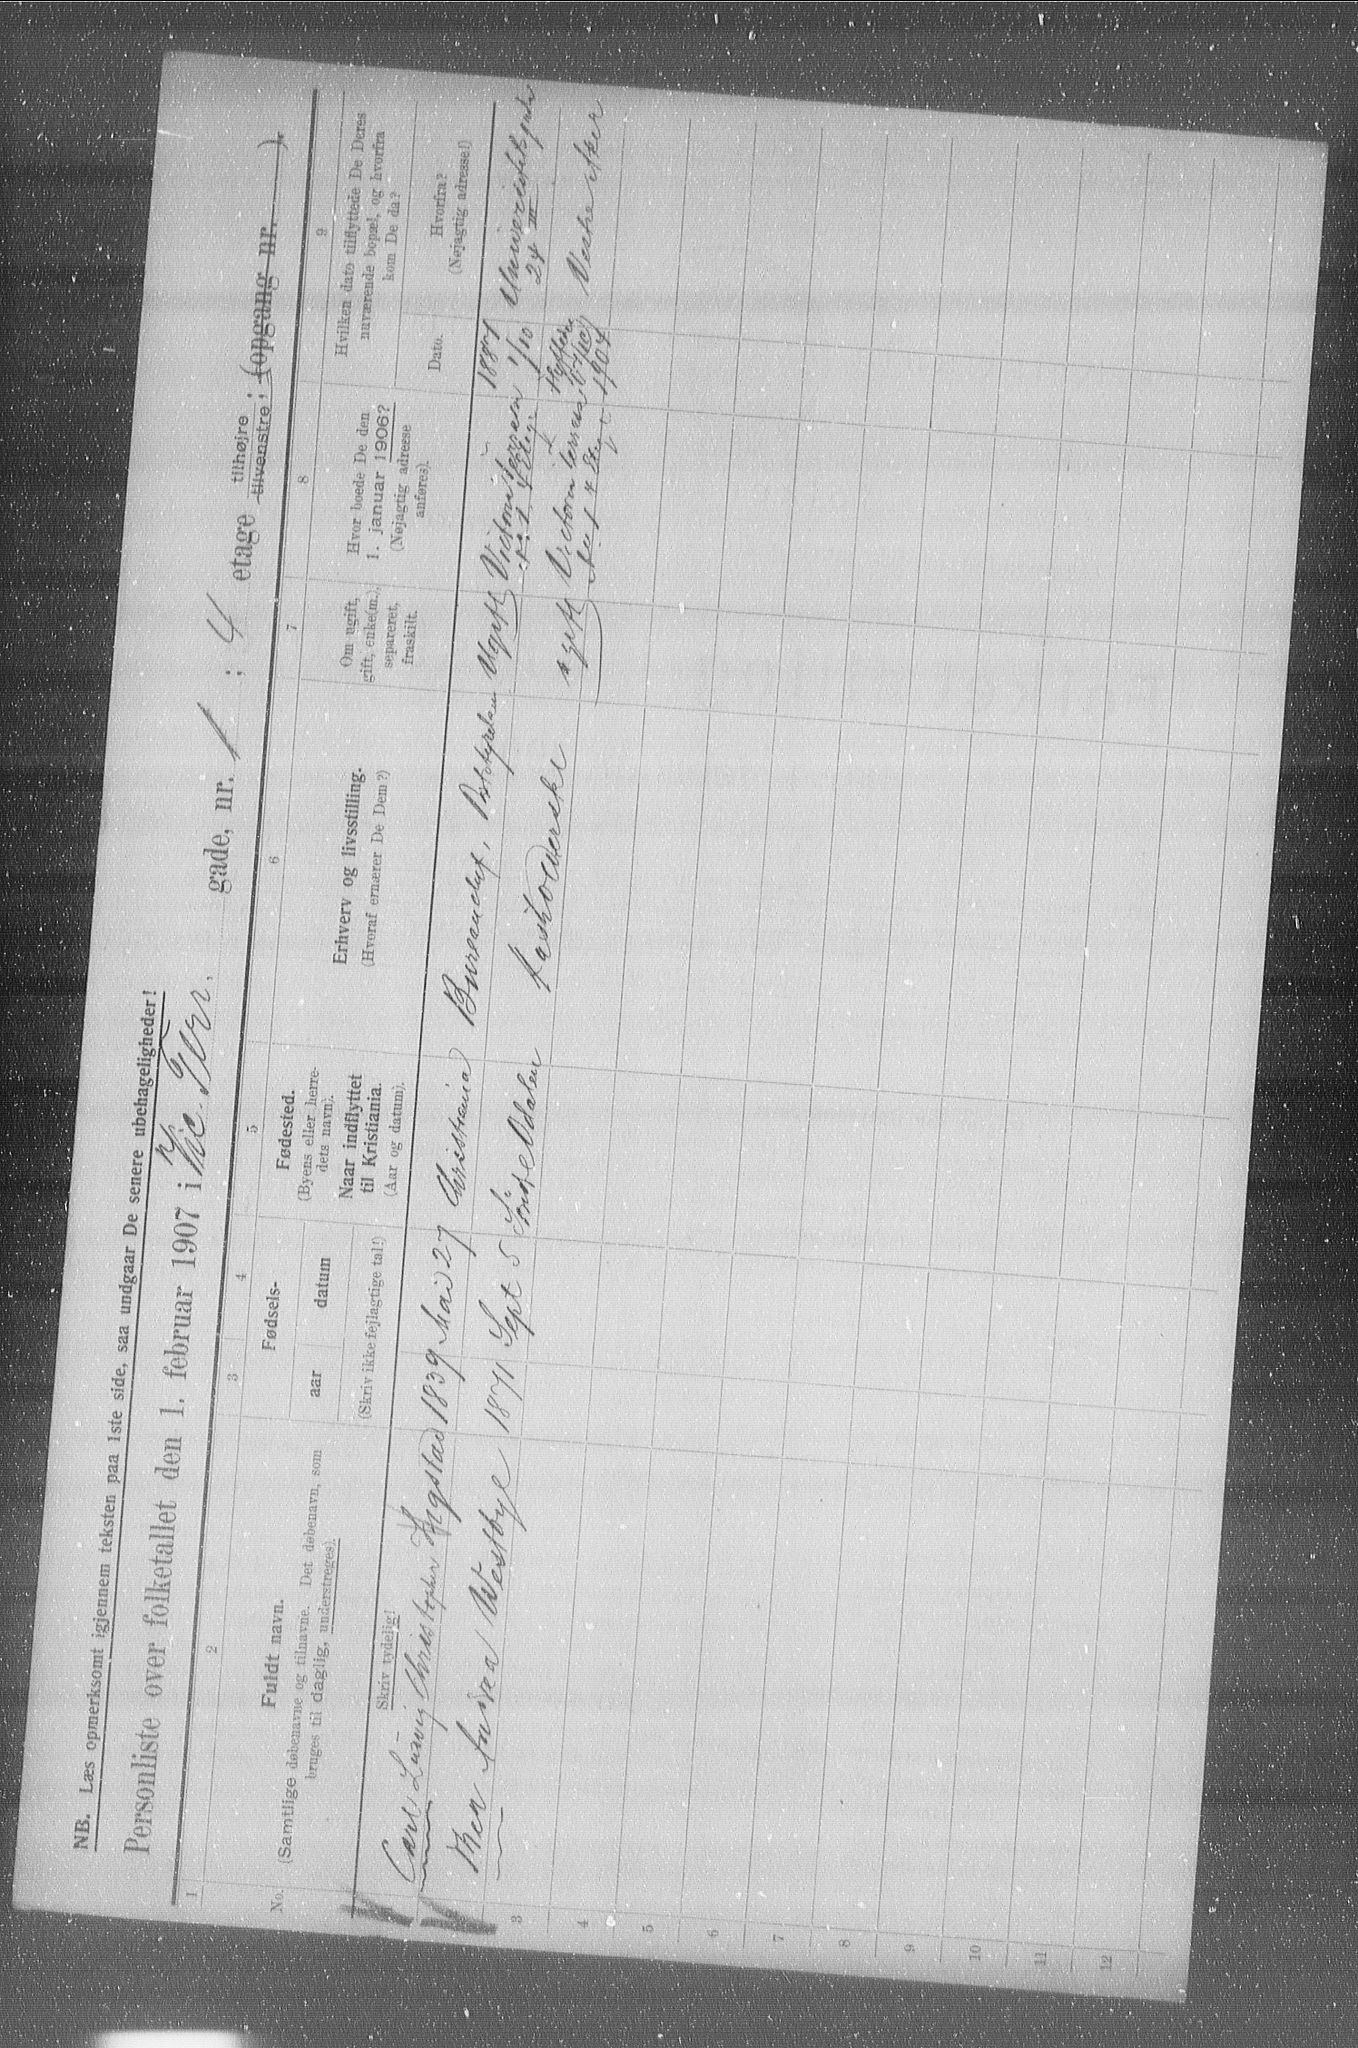 NB. Læs opmerksomt igjennem teksten paa 1ste side, saa undgaar De senere ubehageligheder!
Personliste over folketallet den 1. februar 1907 i Vic. Terr. gade, nr. 1 ; 4 etage tilhøjre tilvenstre ; (opgang nr. ).
1 2 3 4 5 6 7 8 9
No.
Fuldt navn.
(Samtlige døbenavne og tilnavne. Det døbenavn, som
bruges til daglig, understreges).
Skriv tydelig!
Fødsels-
aar datum
(Skriv ikke fejlagtige tal!)
Fødested.
(Byens eller herre-
dets navn).
Naar indflyttet
til Kristiania.
(Aar og datum).
Erhverv og livsstilling.
(Hvoraf ernærer De Dem?)
Om ugift,
gift, enke(m.),
separeret,
fraskilt.
Hvor boede De den
1. januar 1906?
(Nøjagtig adresse
anføres).
Hvilken dato tilflyttede De Deres
nuværende bopæl, og hvorfra
kom De da?
Dato.
Hvorfra?
(Nøjagtig adresse!)
Carl Ludvig Christopher 1839 Mai 27 Christiania Bureauchef, Poststyrelsen Ugift Victoria Terrasse 1887
No 1 4 Etg. 1/10 24 III
Thea Andrea Westbye 1871 Sept 5 Søndre Odalen ugift Victoria Terrasse
No 1 4 Etg 1904 Vestre Aker
3
4
5
6
7
8
9
10
11
12